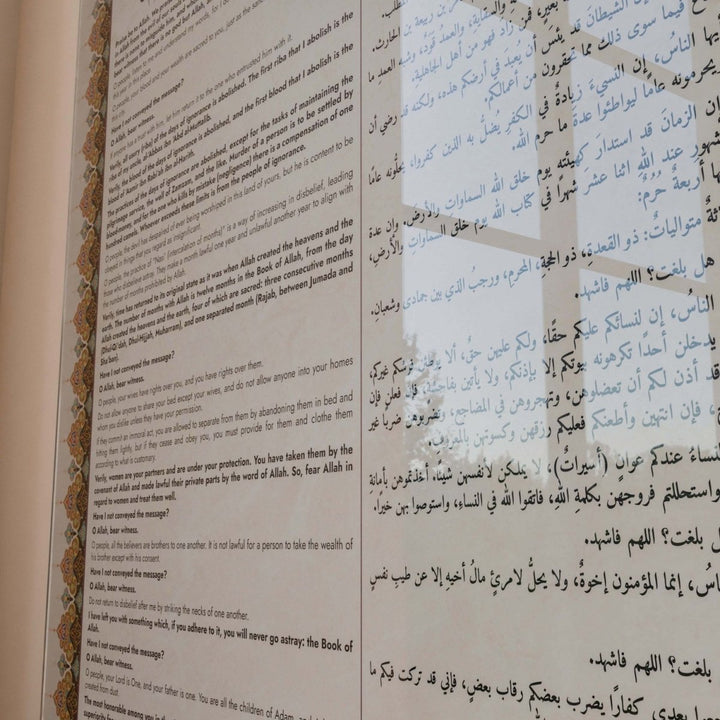 Praise be to Allah. We
bear witness that there is no god but Allah,
O people, listen to me and understand my words, for I do
this year in this place
O people, your blood and your wealth are sacred to you, just as the san
Have I not conveyed the message?
O Allah, bear witness.
let him return it to the one who entrusted him with it.
of the days of ignorance is abolished. The first riba that I abolish is the
riba of my uncle, al-Abbas ibn Abd al-Muttalib.
Verily, the blood of the days of ignorance is abolished, and the first blood that I abolish is the
blood of Aamir ibn Rabi'ah ibn al-Harith.
The practices of the days of ignorance are abolished, except for the tasks of maintaining the
pilgrimage service, the well of Zamzam, and the like. Murder of a person is to be settled by
bloodmoney, and for the one who kills by mistake (negligence) there is a compensation of one
hundred camels. Whoever exceeds these limits is from the people of ignorance.
O people, the devil has despaired of ever being worshipped in this land of yours, but he is content to be
obeyed in things that you regard as insignificant.
O people, the practice of "Nasi' (intercalation of months)" is a way of increasing in disbelief, leading
those who disbelieve astray. They make a month lawful one year and unlawful another year to align with
the number of months prohibited by Allah.
Verily, time has returned to its original state as it was when Allah created the heavens and the
earth. The number of months with Allah is twelve months in the Book of Allah, from the day
Allah created the heavens and the earth, four of which are sacred: three consecutive months
(Dhul-Qi'dah, Dhul-Hijjah, Muharram), and one separated month (Rajab, between Jumada and
Sha'ban).
Have I not conveyed the message?
O Allah, bear witness.
O people, your wives have rights over you, and you have rights over them.
Do not allow anyone to share your bed except your wives, and do not allow anyone into your homes
whom you dislike unless they have your permission.
If they commit an immoral act, you are allowed to separate from them by abandoning them in bed and
hitting them lightly, but if they cease and obey you, you must provide for them and clothe them
according to what is customary.
Verily, women are your partners and are under your protection. You have taken them by the
covenant of Allah and made lawful their private parts by the word of Allah. So, fear Allah in
regard to women and treat them well.
Have I not conveyed the message?
O Allah, bear witness.
O people, all the believers are brothers to one another. It is not lawful for a person to take the wealth of
his brother except with his consent.
Have I not conveyed the message?
O Allah, bear witness.
Do not return to disbelief after me by striking the necks of one another.
I have left you with something which, if you adhere to it, you will never go astray: the Book of
Allah.
Have I not conveyed the message?
O Allah, bear witness.
O people, your Lord is One, and your father is one. You are all the children of Adam,
created from dust.
The most honorable among you in th
بن ربيعة بن الحارث.
فمن زاد فهو من أهل الجاهلية.
الشيطان قد يئس أن يُعبد في أرضكم هذه، ولكنه قد رضي أن
فيما سوى ذلك مما تحقرون من أعمالكم.
يها الناسُ، إن النسيءَ زيادةٌ في الكفر يُضلُّ به الذين كفروا، يحلّونه عامًا
يحرمونه عامًا ليواطئوا عدة ما حرم الله.
إن الزمانَ قد استدار كهيئتِهِ يوم خلق الله السماوات والأرضَ. وإن عدة
شهورِ عند الله اثنا عشرَ شهرًا في كتاب الله يوم خلق السماوات والأرضَ،
ها أربعةٌ حُرُمٌ:
ثةٌ متوالياتٌ: ذو القعدةِ، ذو الحجةِ، المحرم، ورجبُ الذي بين جمادى وشعبانِ.
هل بلغت؟ اللهم فاشهد.
الناسُ، إن لنسائكم عليكم حقًا، ولكم عليهن حقٌ، ألا
يدخلن أحدًا تكرهونه بيوتكم إلا بإذنكم، ولا يأتين بفاحشة، فإن فعلن فإن
قد أذن لكم أن تعضلوهن، وتهجروهن في المضاجع، وتضربوهن ضربًا غير
، فإن انتهين وأطعنكم فعليكم رزقهن وكسوتهن بالمعروف.
لنساءُ عندكم عوانٍ (أسيراتٌ)، لا يملكن لأنفسهن شيئًا، أخذتموهن بأمانة
واستحللتم فروجَهن بكلمةِ اللهِ، فاتقوا الله في النساءِ، واستوصوا بهن خيرًا.
ل بلغت؟ اللهم فاشهد.
ناسُ، إنما المؤمنون إخوةٌ، ولا يحلُّ لامرئٍ مالُ أخيهِ إلا عن طيبِ نفسٍ
بلغت؟ اللهم فاشهد.
بعدي كفارًا يضرب بعضكم رقاب بعضٍ، فإني قد تركت فيكم ما